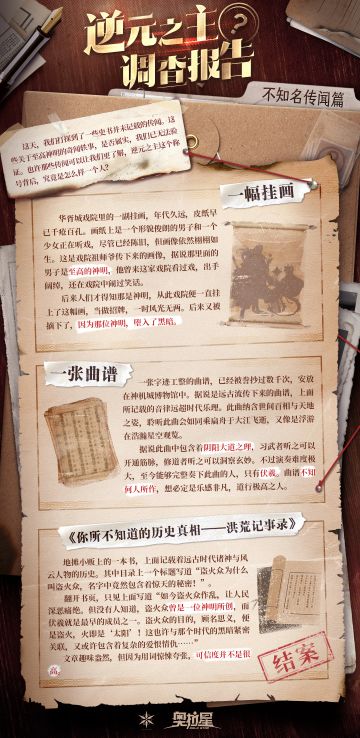 逆元之主
调查报告
不知名传闻篇
这天，我们打探到了一些史书并未记载的传闻。这
些关于至高神明的奇闻轶事，是否属实，我们已无法验
证。也许那些传闻可以让我们更了解，逆元之主这个称
号背后，究竟是怎么样一个人？
一幅挂画
华胥城戏院里的一副挂画，年代久远，皮纸早
已千疮百孔。画纸上是一个形貌俊朗的男子和一个
少女正在听戏，尽管已经陈旧，但画像依然栩栩如
生。这是戏院祖师爷传下来的画像，据说那里面的
男子是至高的神明，他曾来这家戏院看过戏，出手
阔绰，还在戏院中闹过笑话。
后来人们才得知那是神明，从此戏院便一直挂
上了这幅画，当做招牌，一时风光无两。后来又被
摘下了，因为那位神明，堕入了黑暗。
一张曲谱
一张字迹工整的曲谱，已经被誊抄过数千次，安放
在神机城博物馆中。据说是远古流传下来的曲谱，上面
所记载的音律远超时代乐理。此曲纳含世间百相与天地
之姿，聆听此曲会如同乘扁舟于大江飞逝，又像是浮游
在浩瀚星空观览。
据说此曲中包含着阴阳大道之理，习武者听之可以
开通筋脉，修道者听之可以洞察玄妙。不过演奏难度极
大，至今能够完整奏下此曲的人，只有伏羲。曲谱不知
何人所作，想必定是乐感非凡，道行极高之人。
《你所不知道的历史真相——洪荒记事录》
地摊小贩上的一本书，上面记载着远古时代诸神与风
云人物的历史。其中目录上一个标题写道“盗火众为什么
叫盗火众，名字中竟然包含着惊天的秘密！”。
翻开书页，只见上面写道“如今盗火众作乱，让人民
深恶痛绝。但没有人知道，盗火众曾是一位神明所创，而
伏羲就是最早的成员之一。盗火众的目的，顾名思义，便
是盗火，火即是‘太阳’！这也许与那个时代的黑暗紧密
关联，又或许包含着复杂的爱恨情仇……”
文章趣味盎然，但因为用词惊悚夸张，可信度并不是很
高。
结案
奥拉星